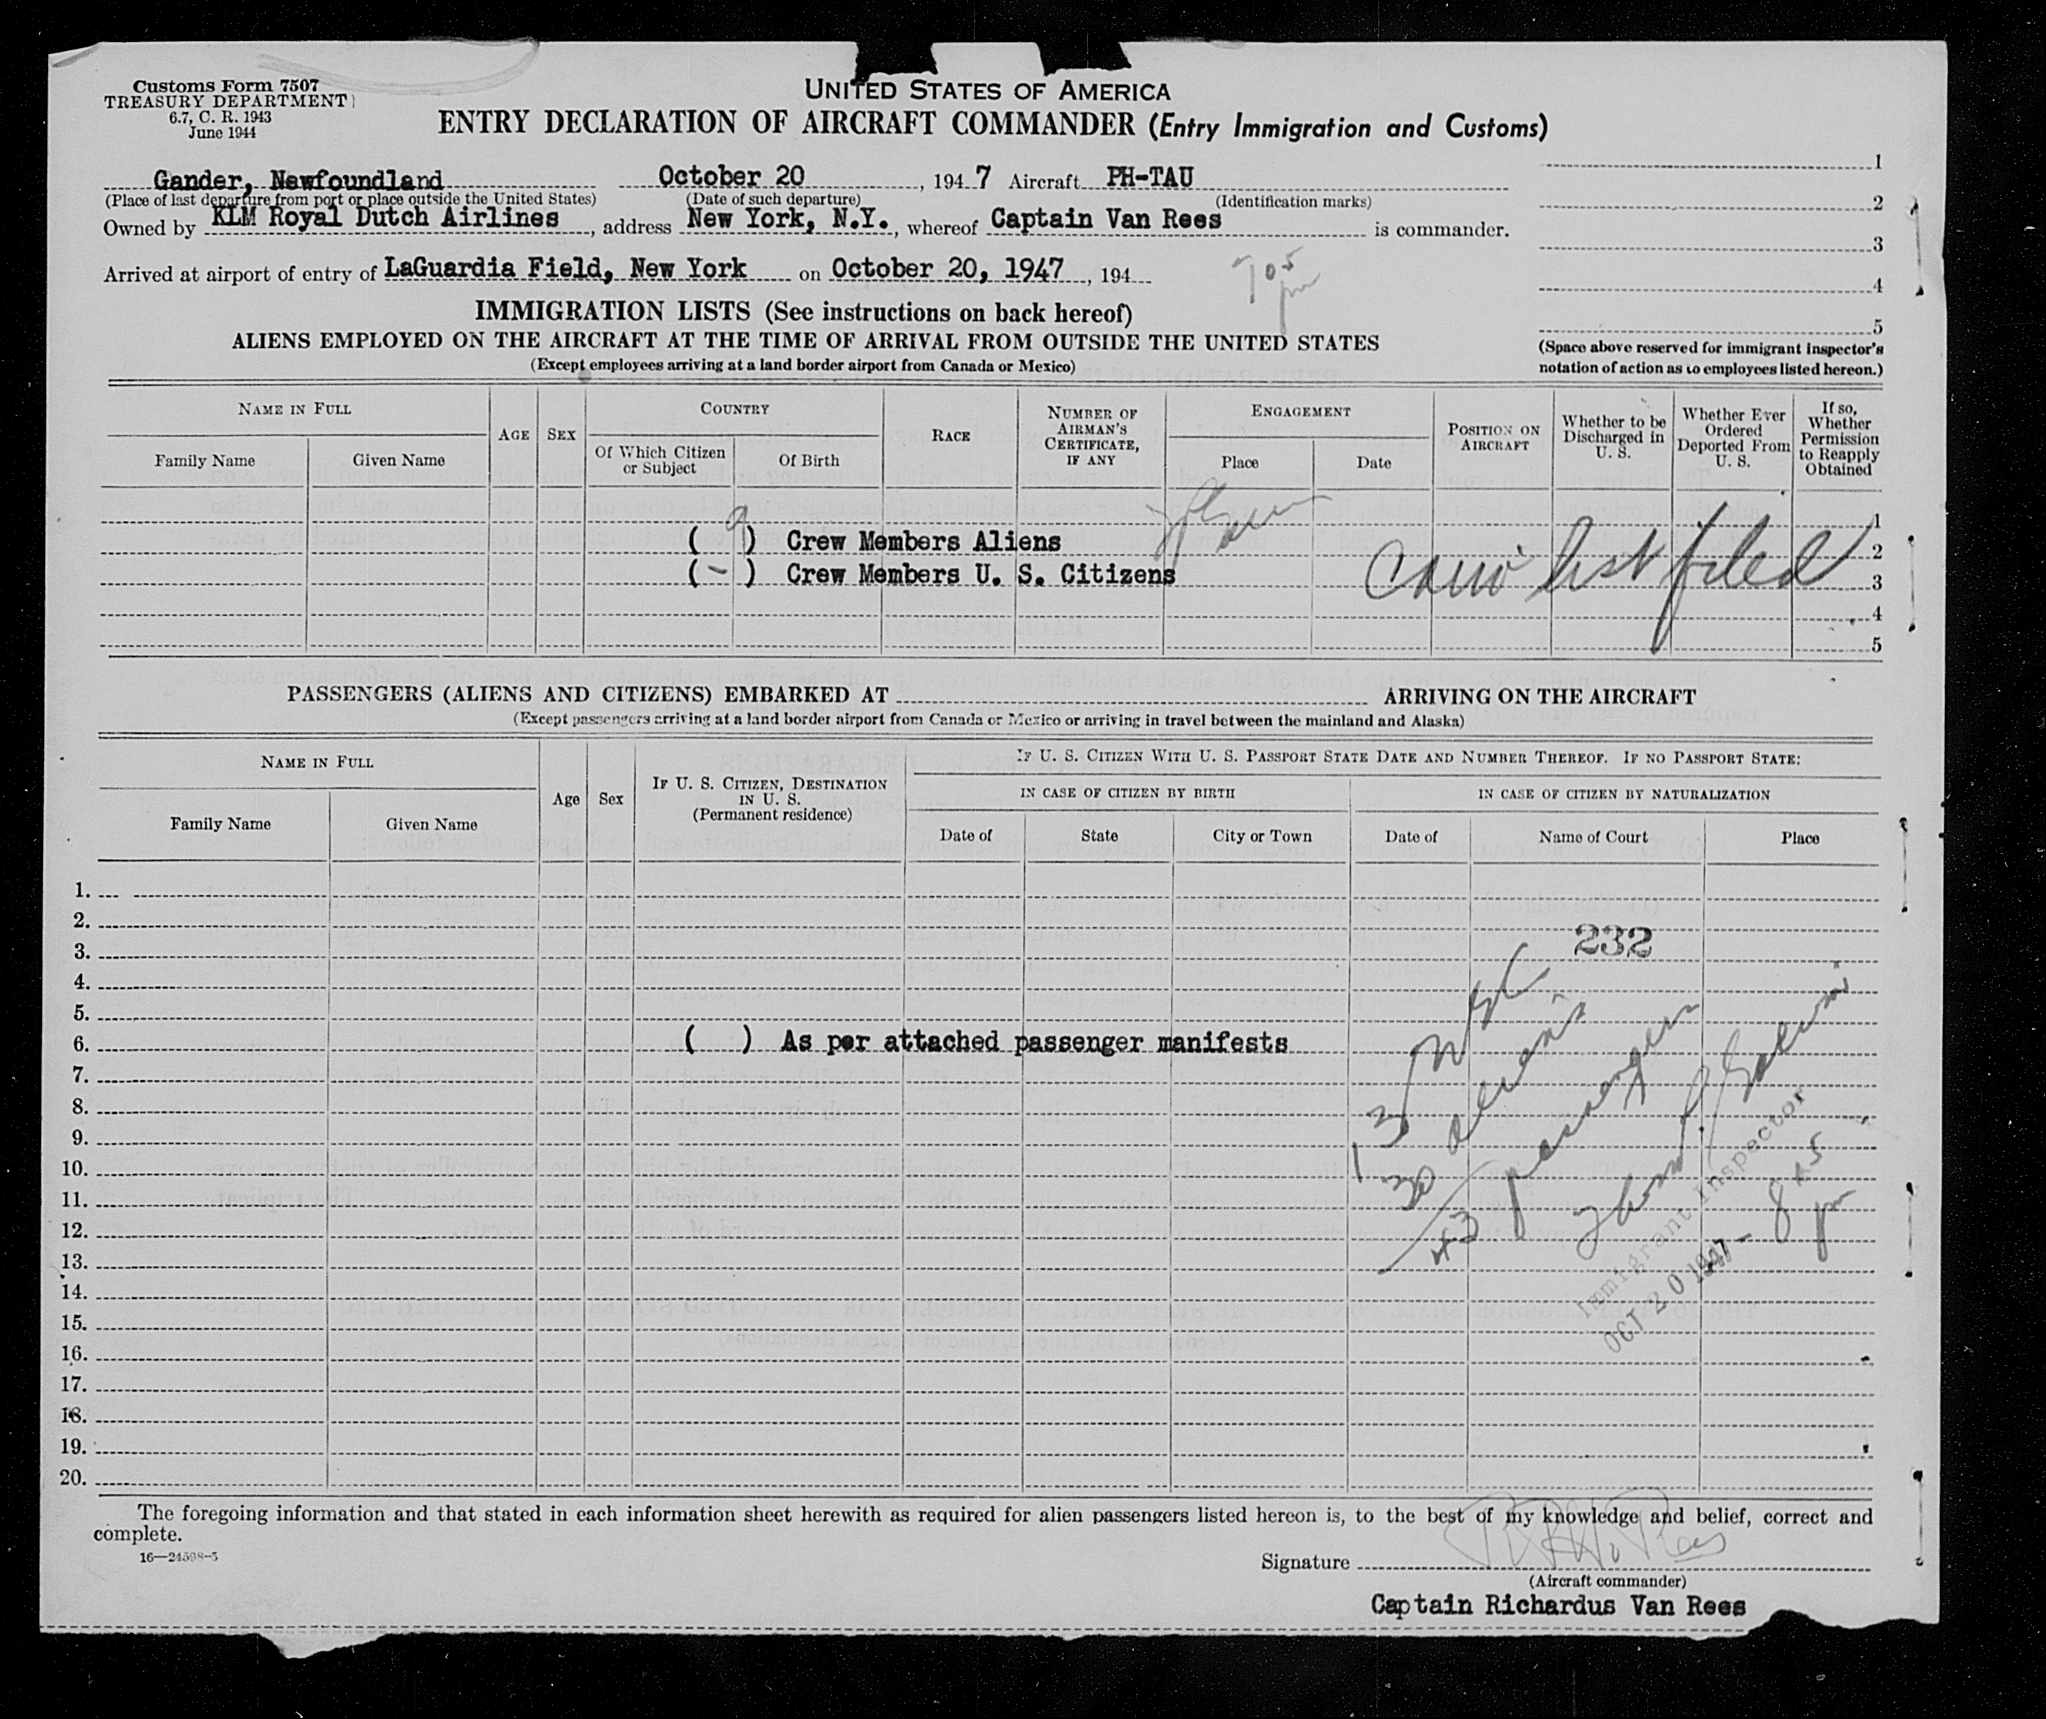 Customs Form 7507
TREASURY DEPARTMENT
6.7, C. R. 1943
June 1944
UNITED STATES OF AMERICA
ENTRY DECLARATION OF AIRCRAFT COMMANDER (Entry Immigration and Customs)
Gander, Newfoundland October 20, 1947 Aircraft PH-TAU
(Place of last departure from port or place outside the United States) (Date of such departure) (Identification marks)
Owned by KLM Royal Dutch Airlines, address New York, N.Y., whereof Captain Van Rees is commander.
Arrived at airport of entry of LaGuardia Field, New York on October 20, 1947, 194
7 05 pm
1
2
3
4
5
(Space above reserved for immigrant inspector's
notation of action as to employees listed hereon.)
IMMIGRATION LISTS (See instructions on back hereof)
ALIENS EMPLOYED ON THE AIRCRAFT AT THE TIME OF ARRIVAL FROM OUTSIDE THE UNITED STATES
(Except employees arriving at a land border airport from Canada or Mexico)
NAME IN FULL
Family Name
Given Name
AGE
SEX
COUNTRY
Of Which Citizen
or Subject
Of Birth
RACE
NUMBER OF
AIRMAN'S
CERTIFICATE,
IF ANY
ENGAGEMENT
Place
Date
POSITION ON
AIRCRAFT
Whether to be
Discharged in
U. S.
Whether Ever
Ordered
Deported From
U. S.
If so,
Whether
Permission
to Reapply
Obtained
1
( 9 ) Crew Members Aliens 2
( - ) Crew Members U. S. Citizens 3
list filed
4
5
PASSENGERS (ALIENS AND CITIZENS) EMBARKED AT ARRIVING ON THE AIRCRAFT
(Except passengers arriving at a land border airport from Canada or Mexico or arriving in travel between the mainland and Alaska)
NAME IN FULL
Family Name
Given Name
Age
Sex
IF U. S. CITIZEN, DESTINATION
IN U. S.
(Permanent residence)
IF U. S. CITIZEN WITH U. S. PASSPORT STATE DATE AND NUMBER THEREOF. IF NO PASSPORT STATE:
IN CASE OF CITIZEN BY BIRTH
Date of
State
City or Town
IN CASE OF CITIZEN BY NATURALIZATION
Date of
Name of Court
Place
1.
2.
232
3.
4.
5.
6. ( ) As per attached passenger manifests
7.
8.
9.
10.
11.
12.
13.
14.
15.
16.
17.
18.
19.
20.
13 USC
30 aliens
43 passengers
Immigrant Inspector
OCT 20 1947 - 8 45 pm
The foregoing information and that stated in each information sheet herewith as required for alien passengers listed hereon is, to the best of my knowledge and belief, correct and
complete.
16—24598-3
Signature
(Aircraft commander)
Captain Richardus Van Rees